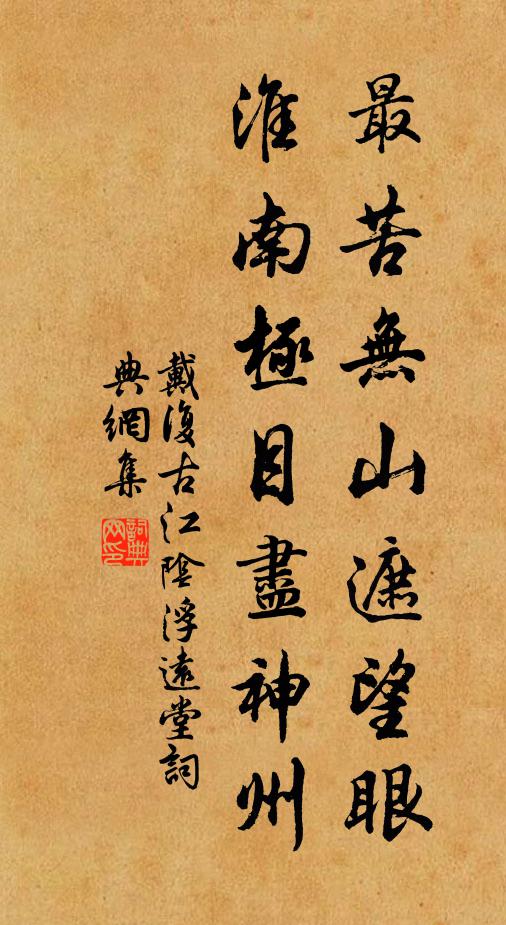 最苦無山遮望眼
淮南極目盡神州
戴復古江陰浮遠堂詞
典網集
詞典網印